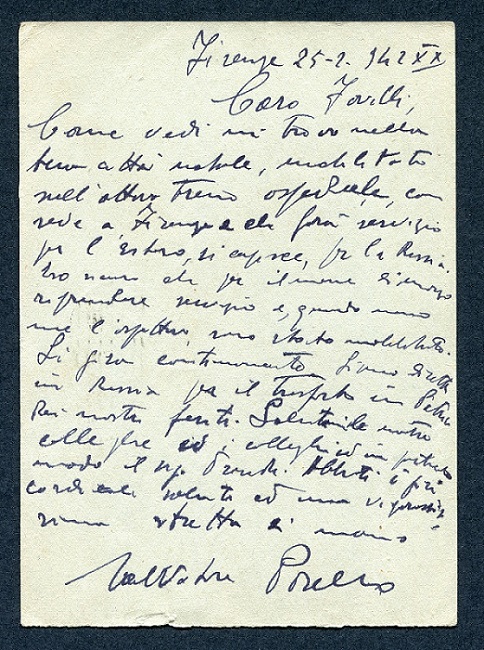 Firenze 25-2. 942 XX
Caro
Come vedi mi trovo nella
tua città natale, mobilitato
nell'ottavo treno ospedale, con
sede a Firenze e che farà servizio
per l'Estero, si capisce, per la Russia.
che per il mese di marzo
riprendere servizio e, quando meno
me l'aspettavo, sono stato mobilitato.
Si gira continuamente. Siamo diretti
in Russia per il trasporto in Patria
dei nostri feriti. Salutami le nostre
colleghe ed i colleghi ed in
modo il sig. Abbiti i più
cordiali saluti ed una vigorosis-
sima stretta di mano
Salvatore